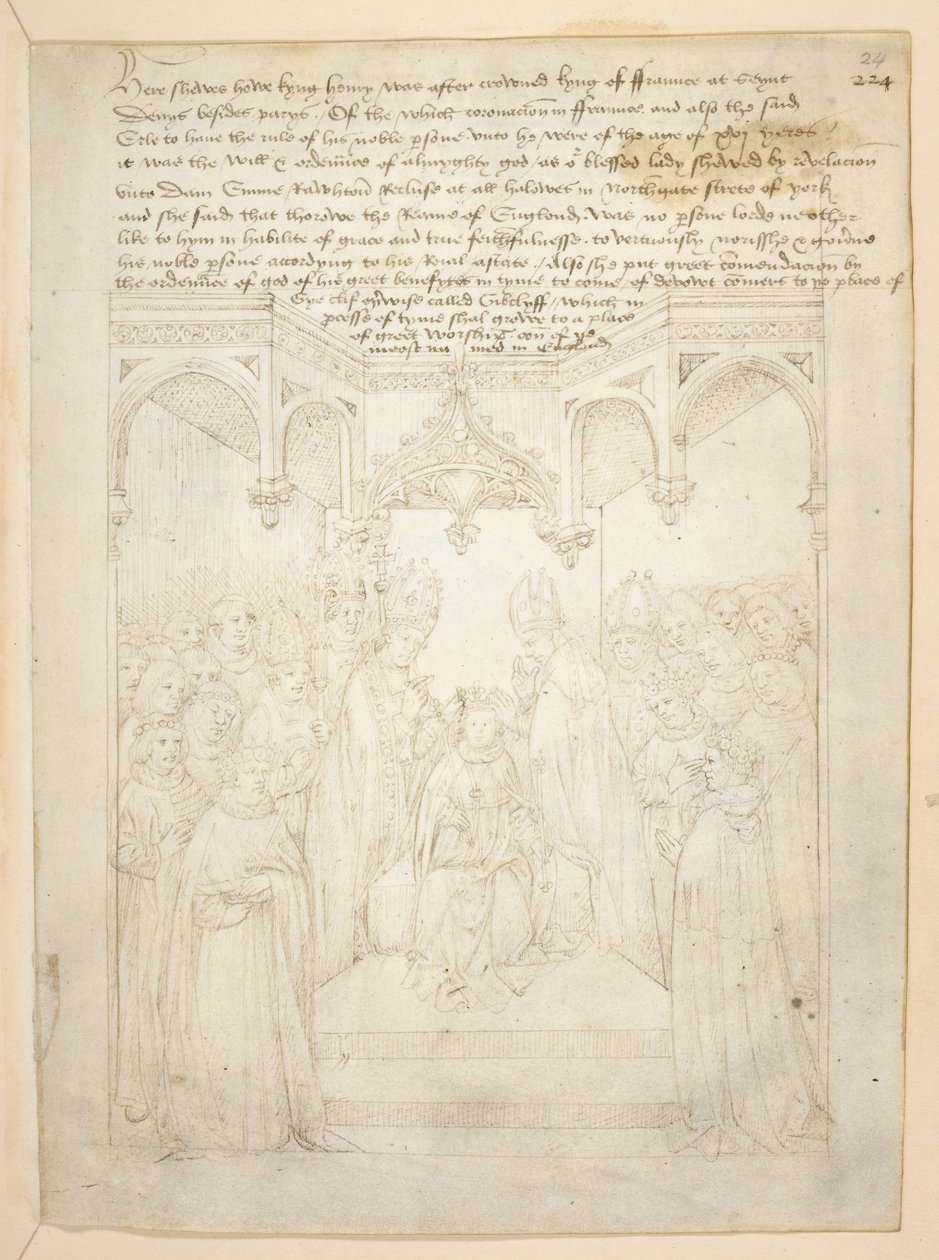 24
224
Here shewes howe kyng henry was after crowned kyng of ffraunce at Seynt
Denys besides parys / Of the which coronacion in ffraunce and also the said
Erle to haue the rule of his noble psone vnto he were of the age of xvj yeres
it was the will & ordenñce of almyghty god / as oʳ blessed lady shewed by revelacion
vnto Dam Emme Rawhton Recluse at all halowes in Northgate strete of york
and she said that thorowe the Reame of Englond was no psone lorde ne other
like to hym in habilite of grace and true feithfulnesse to vertuously norisshe & goũne
his noble psone accordyng to his Roial astate / Also she put greet cõmendacion by
the ordenñce of god of his greet benefytes in tyme to come of devowt cõmers to þe place of
Gye clif oþwise called Gibclyff / which in
pcesse of tyme shal growe to a place
of greet worship oon of þe
moost na med in Englond